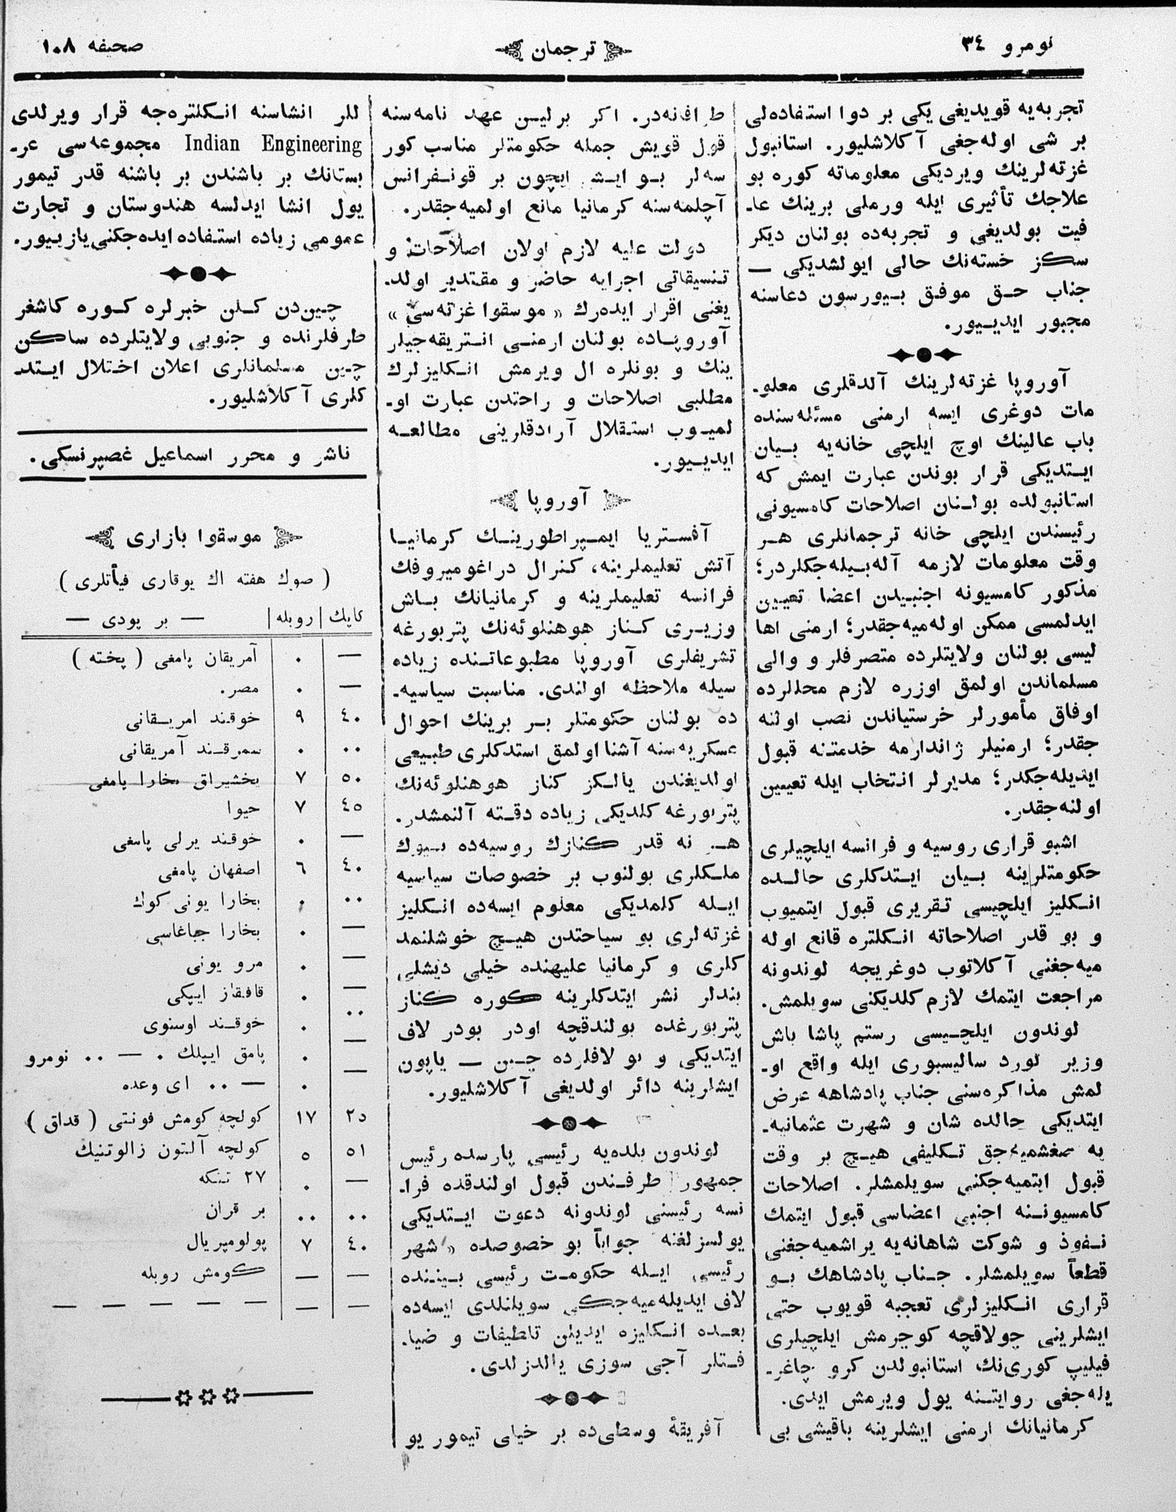 نومرو ٣٤
ترجمان
صحیفه ١٠٨
تجربه‌یه قویدیغی یکی بر دوا استفاده‌لی
بر شی اوله‌جغی آکلاشلیور. استانبول
غزته‌لرینك ویردیکی معلوماته کوره بو
علاجك تأثیری ایله ورملی برینك عا۔
فیت بولدیغی و تجربه‌ده بولنان دیکر
سکز خسته‌نك حالی ایولشدیکی —
جناب حق موفق بیورسون دعاسنه
مجبور ایدییور.
آوروپا غزته‌لرینك آلدقلری معلو۔
مات دوغری ایسه ارمنی مسئله‌سنده
باب عالینك اوچ ایلچی خانه‌یه بیان
ایتدیکی قرار بوندن عبارت ایمش که
استانبولده بولنان اصلاحات کامسیونی
رئیسندن ایلچی خانه ترجمانلری هر
وقت معلومات لازمه آله‌بیله‌جکلردر؛
مذکور کامسیونه اجنبیدن اعضا تعیین
ایدلمسی ممکن اوله‌میه‌جقدر؛ ارمنی اها
لیسی بولنان ولایتلرده متصرفلر و والی
مسلماندن اولمق اوزره لازم محللرده
اوفاق مأمورلر خرستیاندن نصب اولنه
جقدر؛ ارمنیلر ژاندارمه خدمتنه قبول
ایدیله‌جکدر؛ مدیرلر انتخاب ایله تعیین
اولنه‌جقدر.
اشبو قراری روسیه و فرانسه ایلچیلری
حکومتلرینه بیان ایتدکلری حالده
انکلیز ایلچیسی تقریری قبول ایتمیوب
و بو قدر اصلاحاته انکلتره قانع اوله
میه‌جغنی آکلاتوب دوغریجه لوندونه
مراجعت ایتمك لازم کلدیکنی سویلمش.
لوندون ایلچیسی رستم پاشا باش
وزیر لورد سالیسبوری ایله واقع او۔
لمش مذاکره‌سنی جناب پادشاهه عرض
ایتدیکی حالده شان و شهرت عثمانیه۔
یه صغشمیه‌جق تکلیفی هیچ بر وقت
قبول ایتمیه‌جکنی سویلمشلر. اصلاحات
کامسیوننه اجنبی اعضاسی قبول ایتمك
نفوذ و شوکت شاهانه‌یه یراشمیه‌جغنی
قطعاً سویلمشلر. جناب پادشاهك بو
قراری انکلیزلری تعجبه قویوب حتی
ایشلرینی چولاقچه کوجرمش ایلچیلری
فیلیپ کوری‌نك استانبولدن کرو چاغر۔
یله‌جغی روایتنه یول ویرمش ایدی.
کرمانیانك ارمنی ایشلرینه باقیشی بی
طرافنه‌در. اکر برلین عهد نامه‌سنه
قول قویش جمله حکومتلر مناسب کور
سه‌لر بو ایش ایچون بر قونفرانس
آچلمه‌سنه کرمانیا مانع اولمیه‌جقدر.
دولت علیه لازم اولان اصلاحات و
تنسیقاتی اجرایه حاضر و مقتدیر اولد۔
یغنی اقرار ایده‌رك «موسقوا غزته‌سی»
آوروپاده بولنان ارمنی انتریقه‌جیلر
ینك و بونلره ال ویرمش انکلیزلرك
مطلبی اصلاحات و راحتدن عبارت او۔
لمیوب استقلال آرادقلرینی مطالعه
ایدییور.
آوروپا
آفستریا ایمپراطورینك کرمانیا
آتش تعلیملرینه، کنرال دراغومیروفك
فرانسه تعلیملرینه و کرمانیانك باش
وزیری کناز هوهنلوئه‌نك پتربورغه
تشریفلری آوروپا مطبوعاتنده زیاده
سیله ملاحظه اولندی. مناسبت سیاسیه۔
ده بولنان حکومتلر بر برینك احوال
عسکریه‌سنه آشنا اولمق استدکلری طبیعی
اولدیغندن یالکز کناز هوهنلوئه‌نك
پتربورغه کلدیکی زیاده دقته آلنمشدر.
هر نه قدر کنازك روسیه‌ده بیوك
ملکلری بولنوب بر خصوصات سیاسیه
ایله کلمدیکی معلوم ایسه‌ده انکلیز
غزته‌لری بو سیاحتدن هیچ خوشلنمد
کلری و کرمانیا علیهنده خیلی دیشلی
بندلر نشر ایتدکلرینه کوره کناز
پتربورغده بولندقچه اودر بودر لاف
ایتدیکی و بو لافلرده چین — یاپون
ایشلرینه دائر اولدیغی آکلاشلیور.
لوندون بلدیه رئیسی پارسده رئیس
جمهور طرفندن قبول اولندقده فرا۔
نسه رئیسنی لوندونه دعوت ایتدیکی
یولسزلغنه جواباً بو خصوصده «شهر
رئیسی ایله حکومت رئیسی بیننده
لاف ایدیله‌میه‌جکی سویلندی ایسه‌ده
بعده انکلیزه ایدیلن تلطیفات و ضیا۔
فتلر آجی سوزی یالدزلدی.
آفریقۀ وسطی‌ده بر خیلی تیمور یو
للر انشاسنه انکلتره‌جه قرار ویرلدی
Indian Engineering مجموعه‌سی عر۔
بستانك بر باشندن بر باشنه قدر تیمور
یول انشا ایدلسه هندوستان و تجارت
عمومی زیاده استفاده ایده‌جکنی یازییور.
چین‌دن کلن خبرلره کوره کاشغر
طرفلرنده و جنوبی ولایتلرده ساکن
چین مسلمانلری اعلان اختلال ایتد
کلری آکلاشلیور.
ناشر و محرر اسماعیل غصپرنسکی.
موسقوا بازاری
( صوك هفته اك یوقاری فیأتلری )
— بر پودی — | روبله | کاپك
آمریقان پامغی ( پخته ) ٠ —
مصر. ٠ —
خوقند امریقانی ٩ ٤٠
سمرقند آمریقانی ٠ ٠٠
بخشیراق بخارا پامغی ٧ ٥٠
حیوا ٧ ٤٥
خوقند یرلی پامغی ٠ —
اصفهان پامغی ٦ ٤٠
بخارا یونی کوك ٠ ٠٠
بخارا جباغاسی ٠ —
مرو یونی ٠ —
قافقاز ایپکی ٠ —
خوقند اوسنوی ٠ ٠٠
پامق ایپلك ٠ — ٠٠ نومرو ٠ —
— ٠٠ ای وعده ٠ —
کولچه کومش فونتی ( قداق ) ١٧ ٢٥
کولچه آلتون زالوتنیك ٥ ٥١
٢٧ تنکه ٠ —
بر قران ٠٠ ٠٠
پولومپریال ٧ ٤٠
کومش روبله — —
— — — — — — —